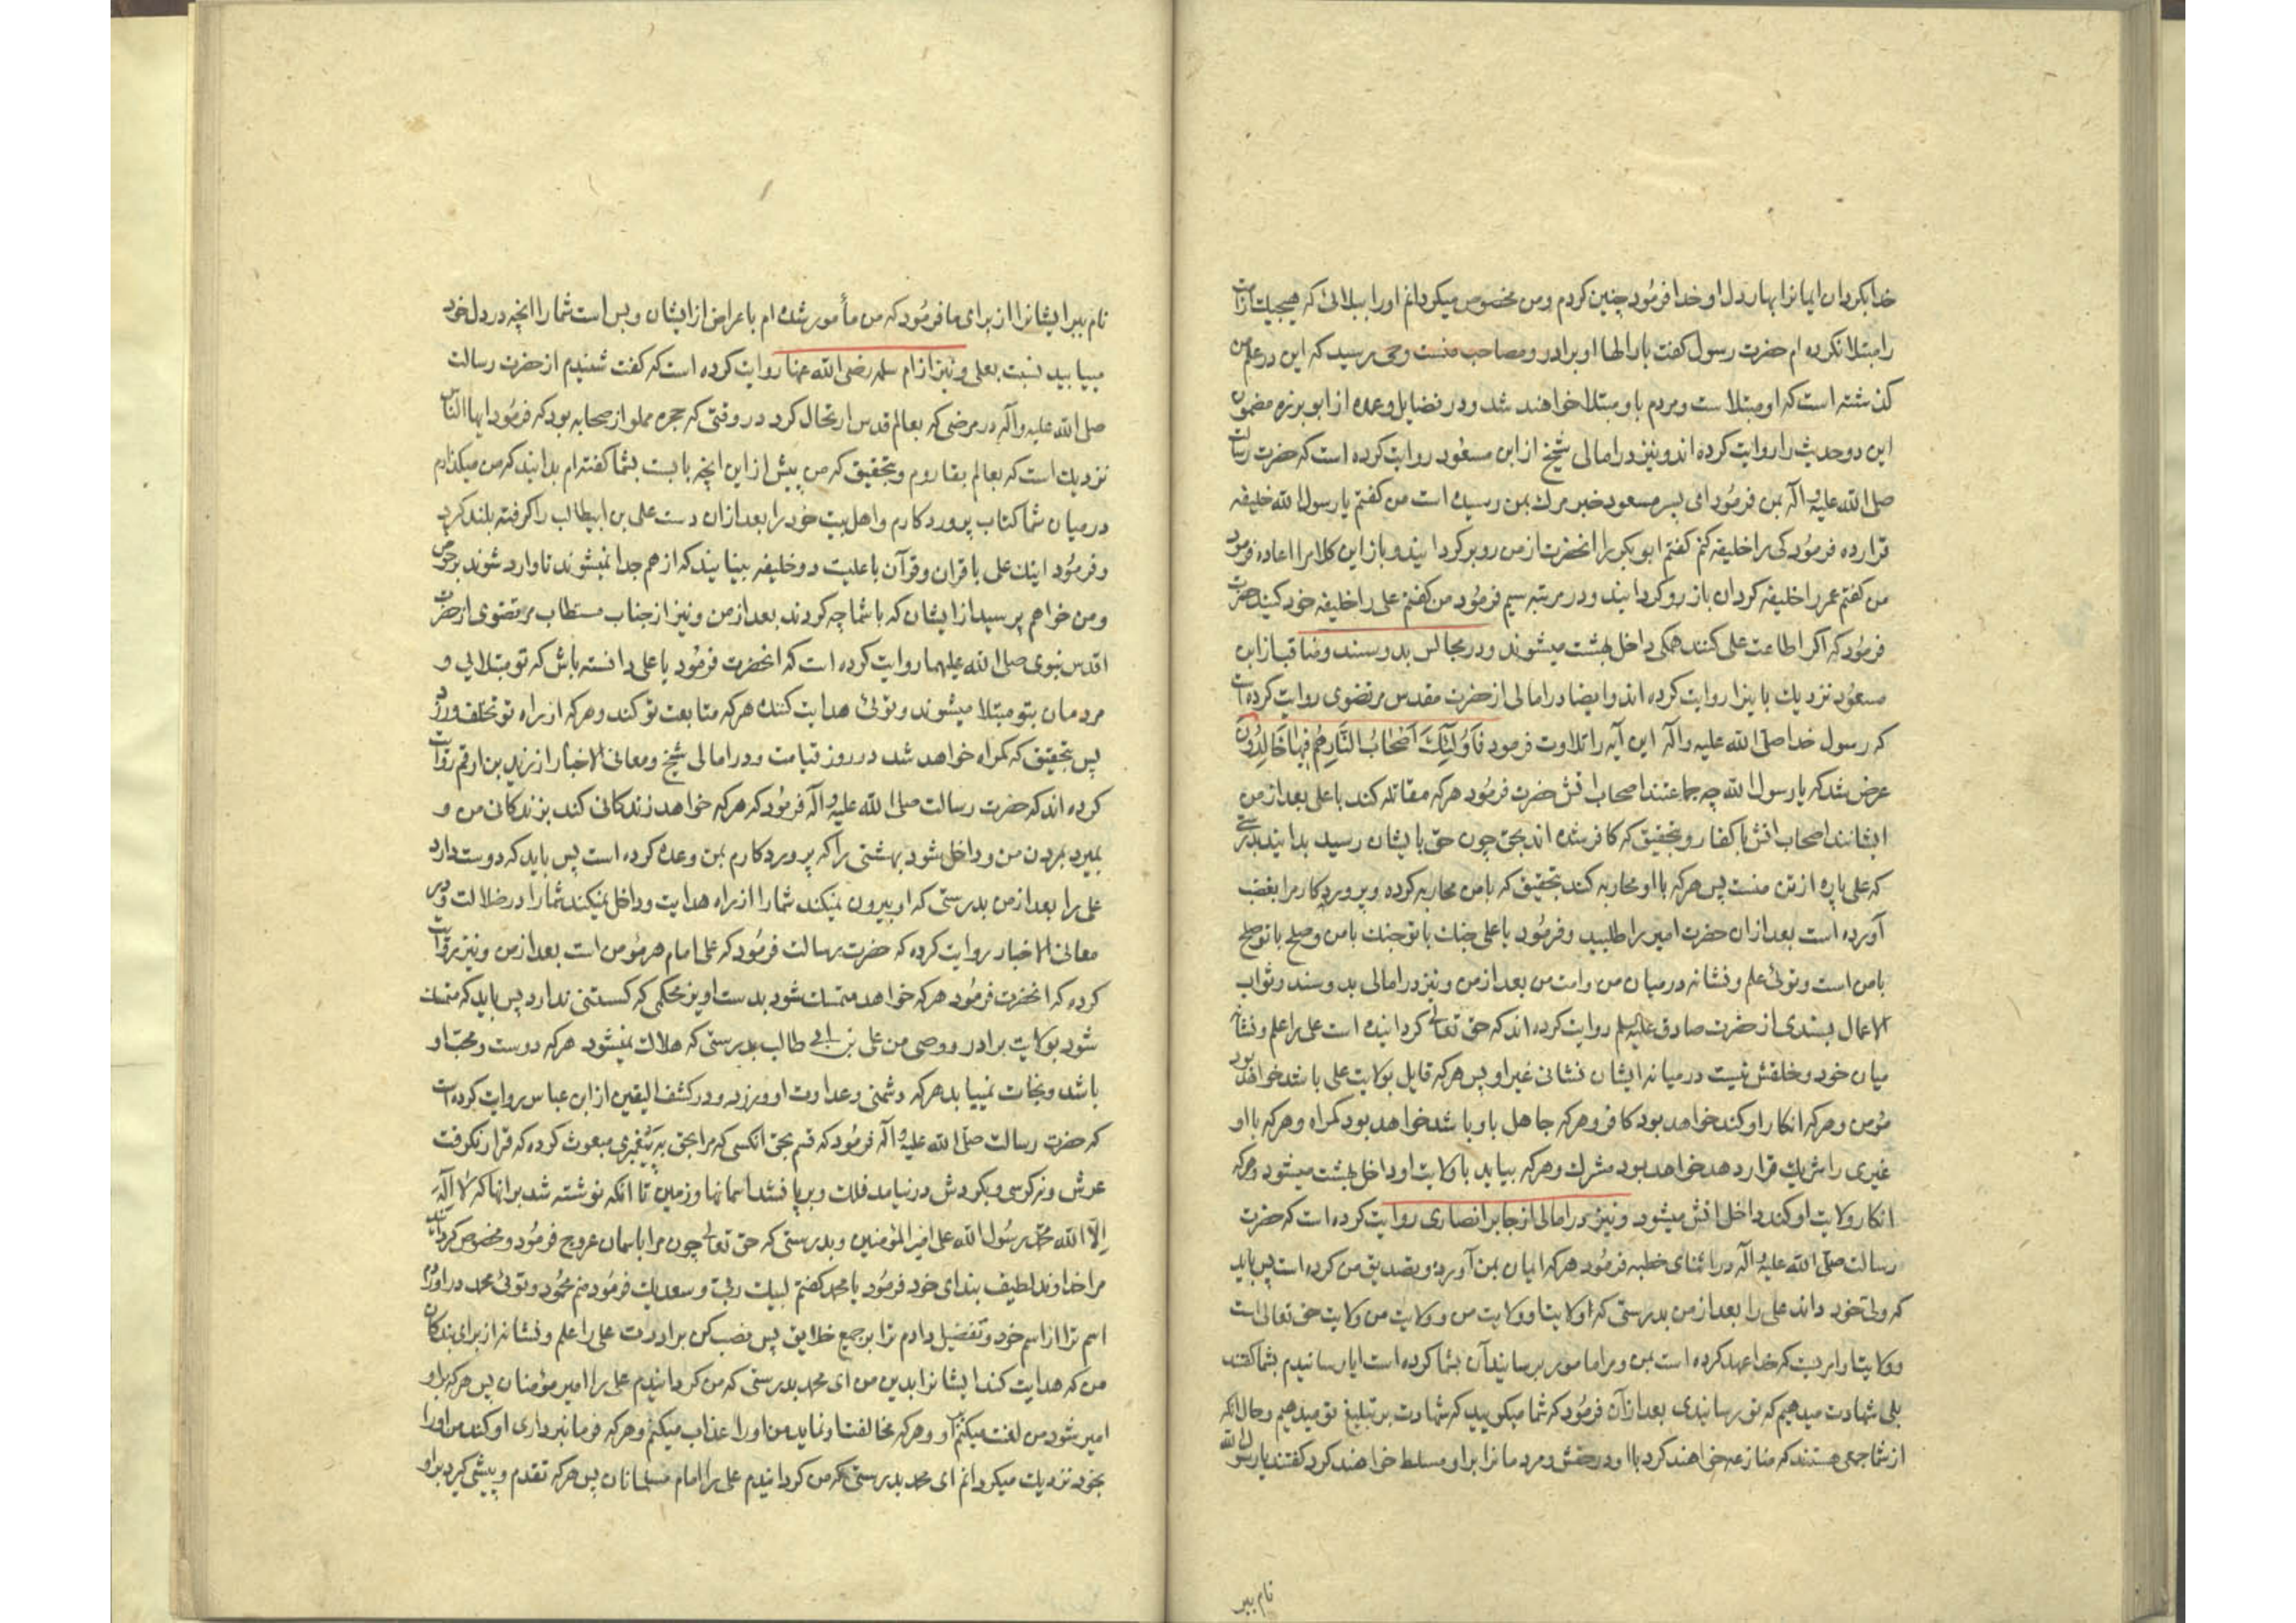 خدا بکردان ایمانرا بهار دل او خدا فرمود چنین کردم و من مخصوص میکردانم او را ببلائی که هیچیک از امت
را مبتلا نکرده ام حضرت رسول کفت بار الها او برادر و مصاحب منست وحی رسید که این در علم من
کذشته است که او مبتلاست و مردم باو مبتلا خواهند شد و در فضایل وعمده از ابو برزه مضمون
این دو حدیث را روایت کرده اند و نیز در امالی شیخ از ابن مسعود روایت کرده است که حضرت رسالت
صلی الله علیه و آله بمن فرمود ای پسر مسعود خبر مرك بمن رسیده است من کفتم یا رسول الله خلیفه
قرار ده فرمود کی را خلیفه کنم کفتم ابو بکر را انحضرت از من رو بر کردانید و باز این کلام را اعاده فرمود
من کفتم عمر را خلیفه کردان باز رو کردانید و در مرتبه سیم فرمود من کفتم علی را خلیفه خود کنید حضرت
فرمود که اکر اطاعت علی کنند همکی داخل بهشت میشوند و در مجالس بدو سند و مناقب از ابن
مسعود نزدیك باینرا روایت کرده اند و ایضا در امالی از حضرت مقدس مرتضوی روایت کرده است
که رسول خدا صلی الله علیه و آله این آیه را تلاوت فرمود فَاُولٰئِكَ اَصْحَابُ النَّارِ هُمْ فِیهَا خَالِدُونَ
عرض شد که یا رسول الله چه جماعتند اصحاب اتش حضرت فرمود هر که مقاتله کند با علی بعد از من
ایشانند اصحاب اتش با کفار و بتحقیق که کافر شده اند بحق چون حق بایشان رسید بدانید بدرستی
که علی پاره از تن منست پس هر که با او محاربه کند بتحقیق که با من محاربه کرده و پروردکار مرا بغضب
آورده است بعد از ان حضرت امیر را طلبید و فرمود یا علی جنك با تو جنك با من و صلح با تو صلح
با من است و توئی علم و نشانه در میان من و امت من بعد از من و نیز در امالی بدو سند و ثواب
الاعمال بسندی از حضرت صادق علیه السلم روایت کرده اند که حق تعالی کردانیده است علی را علم و نشانه
میان خود و خلقش نیست در میانه ایشان نشانی غیر او پس هر که قایل بولایت علی باشد خواهد بود
مؤمن و هر که انکار او کند خواهد بود کافر و هر که جاهل باو باشد خواهد بود کمراه و هر که با او
غیری را شریك قرار دهد خواهد بود مشرك و هر که بیاید با ولایت او داخل بهشت میشود و هر که
انکار ولایت او کند داخل اتش میشود و نیز در امالی از جابر انصاری روایت کرده است که حضرت
رسالت صلی الله علیه و آله در اثنای خطبه فرمود هر که ایمان بمن آورده و تصدیق من کرده است پس باید
که ولی خود داند علی را بعد از من بدرستی که ولایت او ولایت من و ولایت من ولایت حق تعالی است
و ولایت او امریست که خدا عهد کرده است بمن و مرا مامور برسانیدآن بشما کرده است ایا رسانیدم بشما کفتند
بلی شهادت میدهیم که تو رسانیدی بعد از آن فرمود که شما میکویید که شهادت بر تبلیغ تو میدهیم و حال انکه
از شما جمعی هستند که منازعه خواهند کرد با او در حقش و مردمانرا بر او مسلط خواهند کرد کفتند یا رسول الله
نام ببر
نام ببر ایشانرا از برای ما فرمود که من مأمور شده ام باعراض از ایشان و بس است شما را انچه در دل خود
مییابید نسبت بعلی و نیز از ام سلمه رضی الله عنها روایت کرده است که کفت شنیدم از حضرت رسالت
صلی الله علیه و آله در مرضی که بعالم قدس ارتحال کرد در وقتی که حجره مملو از صحابه بود که فرمود ایها الناس
نزدیك است که بعالم بقا روم و بتحقیق که من پیش از این انچه بایست بشما کفته ام بدانید که من میکذارم
در میان شما کتاب پروردکارم و اهل بیت خود را بعد از ان دست علی بن ابیطالب را کرفته بلند کرد
و فرمود اینك علی با قران و قرآن با علیست دو خلیفه بینایند که از هم جدا نمیشوند تا وارد شوند بر حوض
و من خواهم پرسید از ایشان که با شما چه کردند بعد از من و نیز از جناب مستطاب مرتضوی از حضرت
اقدس نبوی صلی الله علیهما روایت کرده است که انحضرت فرمود یا علی دانسته باش که تو مبتلائی و
مردمان بتو مبتلا میشوند و توئی هدایت کننده هر که متابعت تو کند و هر که از راه تو تخلف ورزد
پس بتحقیق که کمراه خواهد شد در روز قیامت و در امالی شیخ و معانی الاخبار از زید بن ارقم روایت
کرده اند که حضرت رسالت صلی الله علیه و آله فرمود که هر که خواهد زندکانی کند بزندکانی من و
بمیرد بمردن من و داخل شود بهشتی را که پروردکارم بمن وعده کرده است پس باید که دوست دارد
علی را بعد از من بدرستی که او بیرون نمیکند شما را از راه هدایت و داخل نمیکند شما را در ضلالت و در
معانی الاخبار روایت کرده که حضرت رسالت فرمود که علی امام هر مؤمن است بعد از من و نیز روایت
کرده که انحضرت فرمود هر که خواهد متمسك شود بدست اویز محکمی که کسستنی ندارد پس باید که متمسك
شود بولایت برادر و وصی من علی بن ابی طالب بدرستی که هلاك نمیشود هر که دوست و محب او
باشد و نجات نمییابد هر که دشمنی و عداوت او ورزد و در کشف الیقین از ابن عباس روایت کرده است
که حضرت رسالت صلی الله علیه و آله فرمود که قسم بحق انکسی که مرا بحق به پیغمبری مبعوث کرده که قرار نکرفت
عرش و نه کرسی و بکردش در نیامد فلك و برپا نشد اسمانها و زمین تا انکه نوشته شد بر انها که لا اله
الا الله محمد رسول الله علی امیر المؤمنین و بدرستی که حق تعالی چون مرا باسمان عروج فرمود و مخصوص کردانید
مرا خداوند لطیف بندای خود فرمود یا محمد کفتم لبیك ربی و سعدیك فرمود منم محمود و توئی محمد در اوردم
اسم ترا از اسم خود و تفضیل دادم ترا بر جمیع خلایق پس نصب کن برادرت علی را علم و نشانه از برای بندکان
من که هدایت کند ایشانرا بدین من ای محمد بدرستی که من کردانیدم علی را امیر مؤمنان پس هر که بر او
امیر شود من لعنت میکنم او و هر که مخالفت او نماید من او را عذاب میکنم و هر که فرمانبرداری او کند من او را
بخود نزدیك میکردانم ای محمد بدرستی که من کردانیدم علی را امام مسلمانان پس هر که تقدم و پیشی کیرد بر او